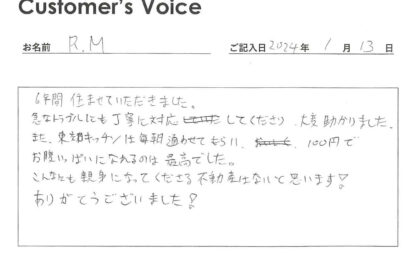 Customer's Voice
お名前 R.M ご記入日 2024 年 1 月 13 日
6年間 住ませていただきました。
急なトラブルにも丁寧に対応 してくださり、大変助かりました。
また、東淵キッチンは毎朝通わせてもらい、100円で
お腹いっぱいになれるのは最高でした。
こんなにも親身になってくださる不動産はないと思います♡
ありがとうございました!